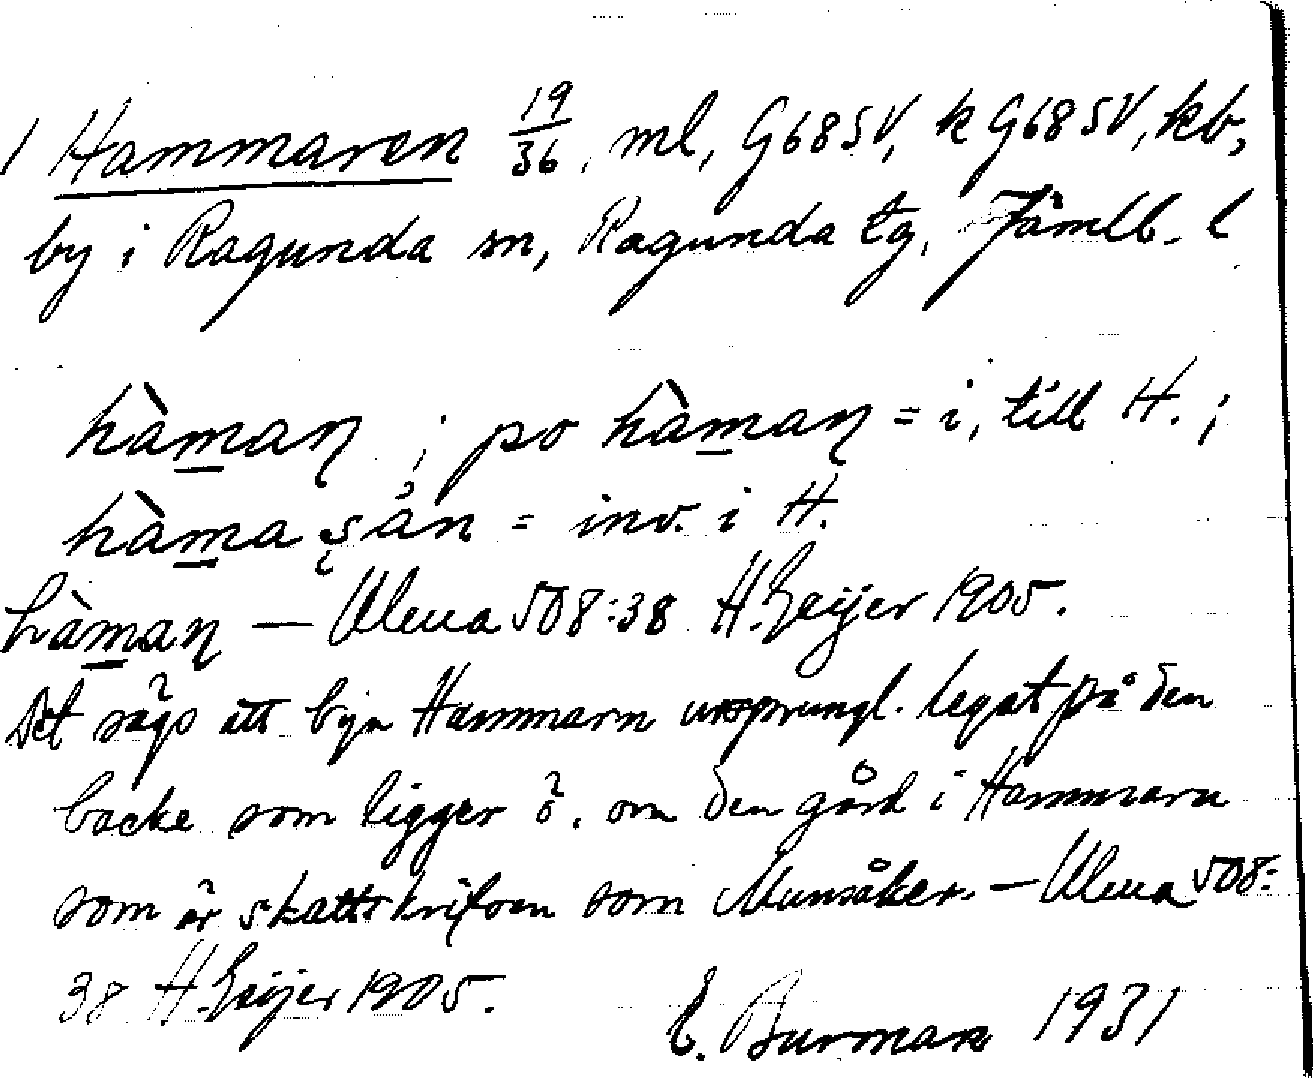 1 Hammaren 19/36, ml, G68SV, k G68SV, kb,
by i Ragunda sn, Ragunda tg, Jämtl. l
hàmaɳ ; po hàmaɳ = i, till H. ;
hàma ʂån = inv. i H.
hàmaɳ — Ulma 508:38 H. Geijer 1905.
Det sägs att byn Hammarn ursprungl. legat på den
backe som ligger ö. om den gård i Hammarn
som är skattskrifven som Munsåker. — Ulma 508:
38 H. Geijer 1905.
E. Burman 1931